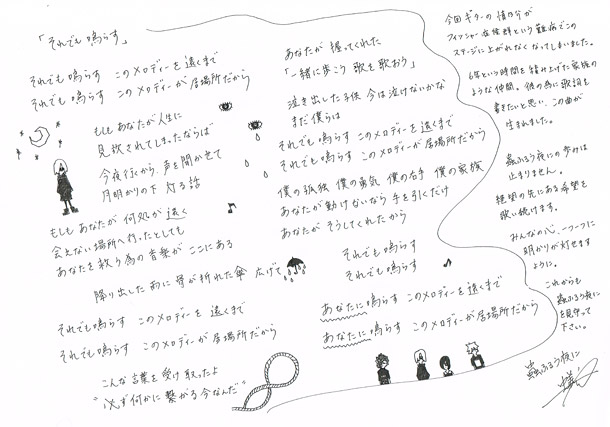 「それでも鳴らす」
それでも鳴らす このメロディーを遠くまで
それでも鳴らす このメロディーが居場所だから
もしもあなたが人生に
見放されてしまったならば
今夜行くから 声を聞かせて
月明かりの下 灯る話
もしもあなたが何処か遠く
会えない場所へ行ったとしても
あなたを救う為の音楽がここにある
降り出した雨に 骨が折れた傘 広げて
それでも鳴らす このメロディーを 遠くまで
それでも鳴らす このメロディーが居場所だから
こんな言葉を受け取ったよ
"必ず何かに繋がる今なんだ"
あなたが 握ってくれた
「一緒に歩こう 歌を歌おう」
泣き出した子供 今は泣けないかな
まだ僕らは
それでも鳴らす このメロディーを遠くまで
それでも鳴らす このメロディーが居場所だから
僕の孤独 僕の勇気 僕の右手 僕の家族
あなたが動けないなら 手を引くだけ
あなたが そうしてくれたから
それでも鳴らす
それでも鳴らす
あなたに鳴らす このメロディーを遠くまで
あなたに鳴らす このメロディーが居場所だから
今回ギターの慎一郎が
フィッシャー症候群という難病でこの
ステージに上がれなくなってしまいました。
6年という時間を積み上げた家族の
ような仲間。彼の為に歌詞を
書きたいと思い、この曲が
生まれました。
蟲ふるう夜にの歩みは
止まりません。
絶望の先にある希望を
歌い続けます。
みんなの心、一つ一つに
明かりが灯せます
ように。
これからも
蟲ふるう夜に
を見守って
下さい。
蟲ふるう夜に